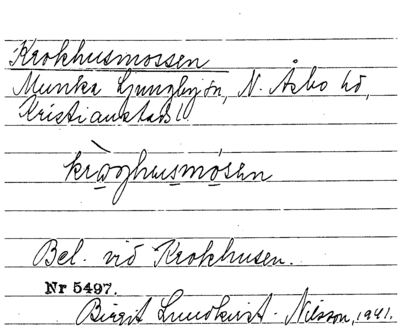 Krokhusmossen
Munka Ljungby sn, N. Åsbo hd,
Kristianstads l
kròghusmósen
Bel. vid Krokhusen.
Nr 5497.
Birgit Lundkvist-Nilsson, 1941.